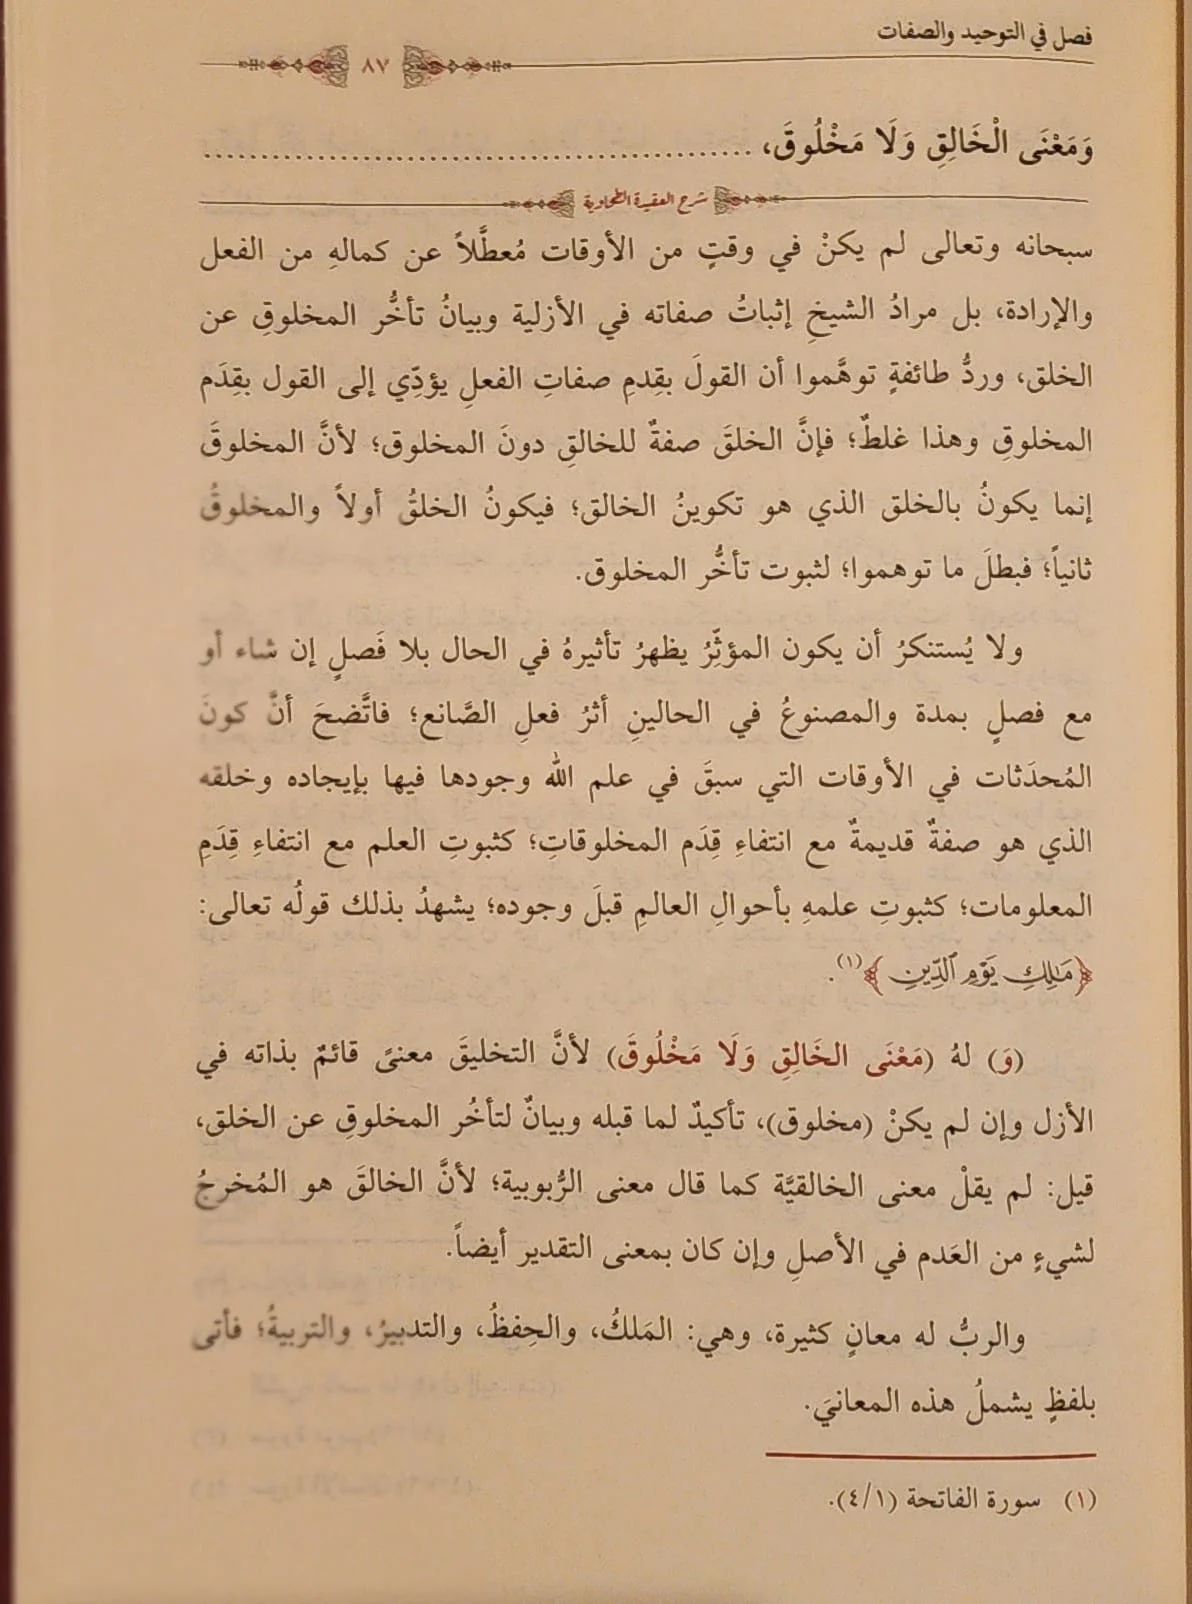 فصل في التوحيد والصفات
٨٧
وَمَعْنَى الْخَالِقِ وَلَا مَخْلُوقَ، ..........................................
شرح العقيدة الطحاوية
سبحانه وتعالى لم يكنْ في وقتٍ من الأوقات مُعطَّلاً عن كمالهِ من الفعل
والإرادة، بل مرادُ الشيخِ إثباتُ صفاته في الأزلية وبيانُ تأخُّر المخلوقِ عن
الخلق، وردُّ طائفةٍ توهَّموا أن القولَ بقِدمِ صفاتِ الفعلِ يؤدِّي إلى القول بقِدَم
المخلوقِ وهذا غلطٌ؛ فإنَّ الخلقَ صفةٌ للخالقِ دونَ المخلوق؛ لأنَّ المخلوقَ
إنما يكونُ بالخلق الذي هو تكوينُ الخالق؛ فيكونُ الخلقُ أولاً والمخلوقُ
ثانياً؛ فبطلَ ما توهموا؛ لثبوت تأخُّر المخلوق.
ولا يُستنكرُ أن يكون المؤثِّرُ يظهرُ تأثيرهُ في الحال بلا فَصلٍ إن شاء أو
مع فصلٍ بمدة والمصنوعُ في الحالينِ أثرُ فعلِ الصَّانع؛ فاتَّضحَ أنَّ كونَ
المُحدَثات في الأوقات التي سبقَ في علم الله وجودها فيها بإيجاده وخلقه
الذي هو صفةٌ قديمةٌ مع انتفاءِ قِدَم المخلوقاتِ؛ كثبوتِ العلم مع انتفاءِ قِدَمِ
المعلومات؛ كثبوتِ علمهِ بأحوالِ العالمِ قبلَ وجوده؛ يشهدُ بذلك قولُه تعالى:
﴿مَٰلِكِ يَوْمِ ٱلدِّينِ﴾(١).
(وَ) لهُ (مَعْنَى الخَالِقِ وَلَا مَخْلُوقَ) لأنَّ التخليقَ معنىً قائمٌ بذاته في
الأزل وإن لم يكنْ (مخلوق)، تأكيدٌ لما قبله وبيانٌ لتأخُر المخلوقِ عن الخلق،
قيل: لم يقلْ معنى الخالقيَّة كما قال معنى الرُّبوبية؛ لأنَّ الخالقَ هو المُخرجُ
لشيءٍ من العَدم في الأصلِ وإن كان بمعنى التقدير أيضاً.
والربُّ له معانٍ كثيرة، وهي: المَلكُ، والحِفظُ، والتدبيرُ، والتربيةُ؛ فأتى
بلفظٍ يشملُ هذه المعانيَ.
(١) سورة الفاتحة (٤/١).